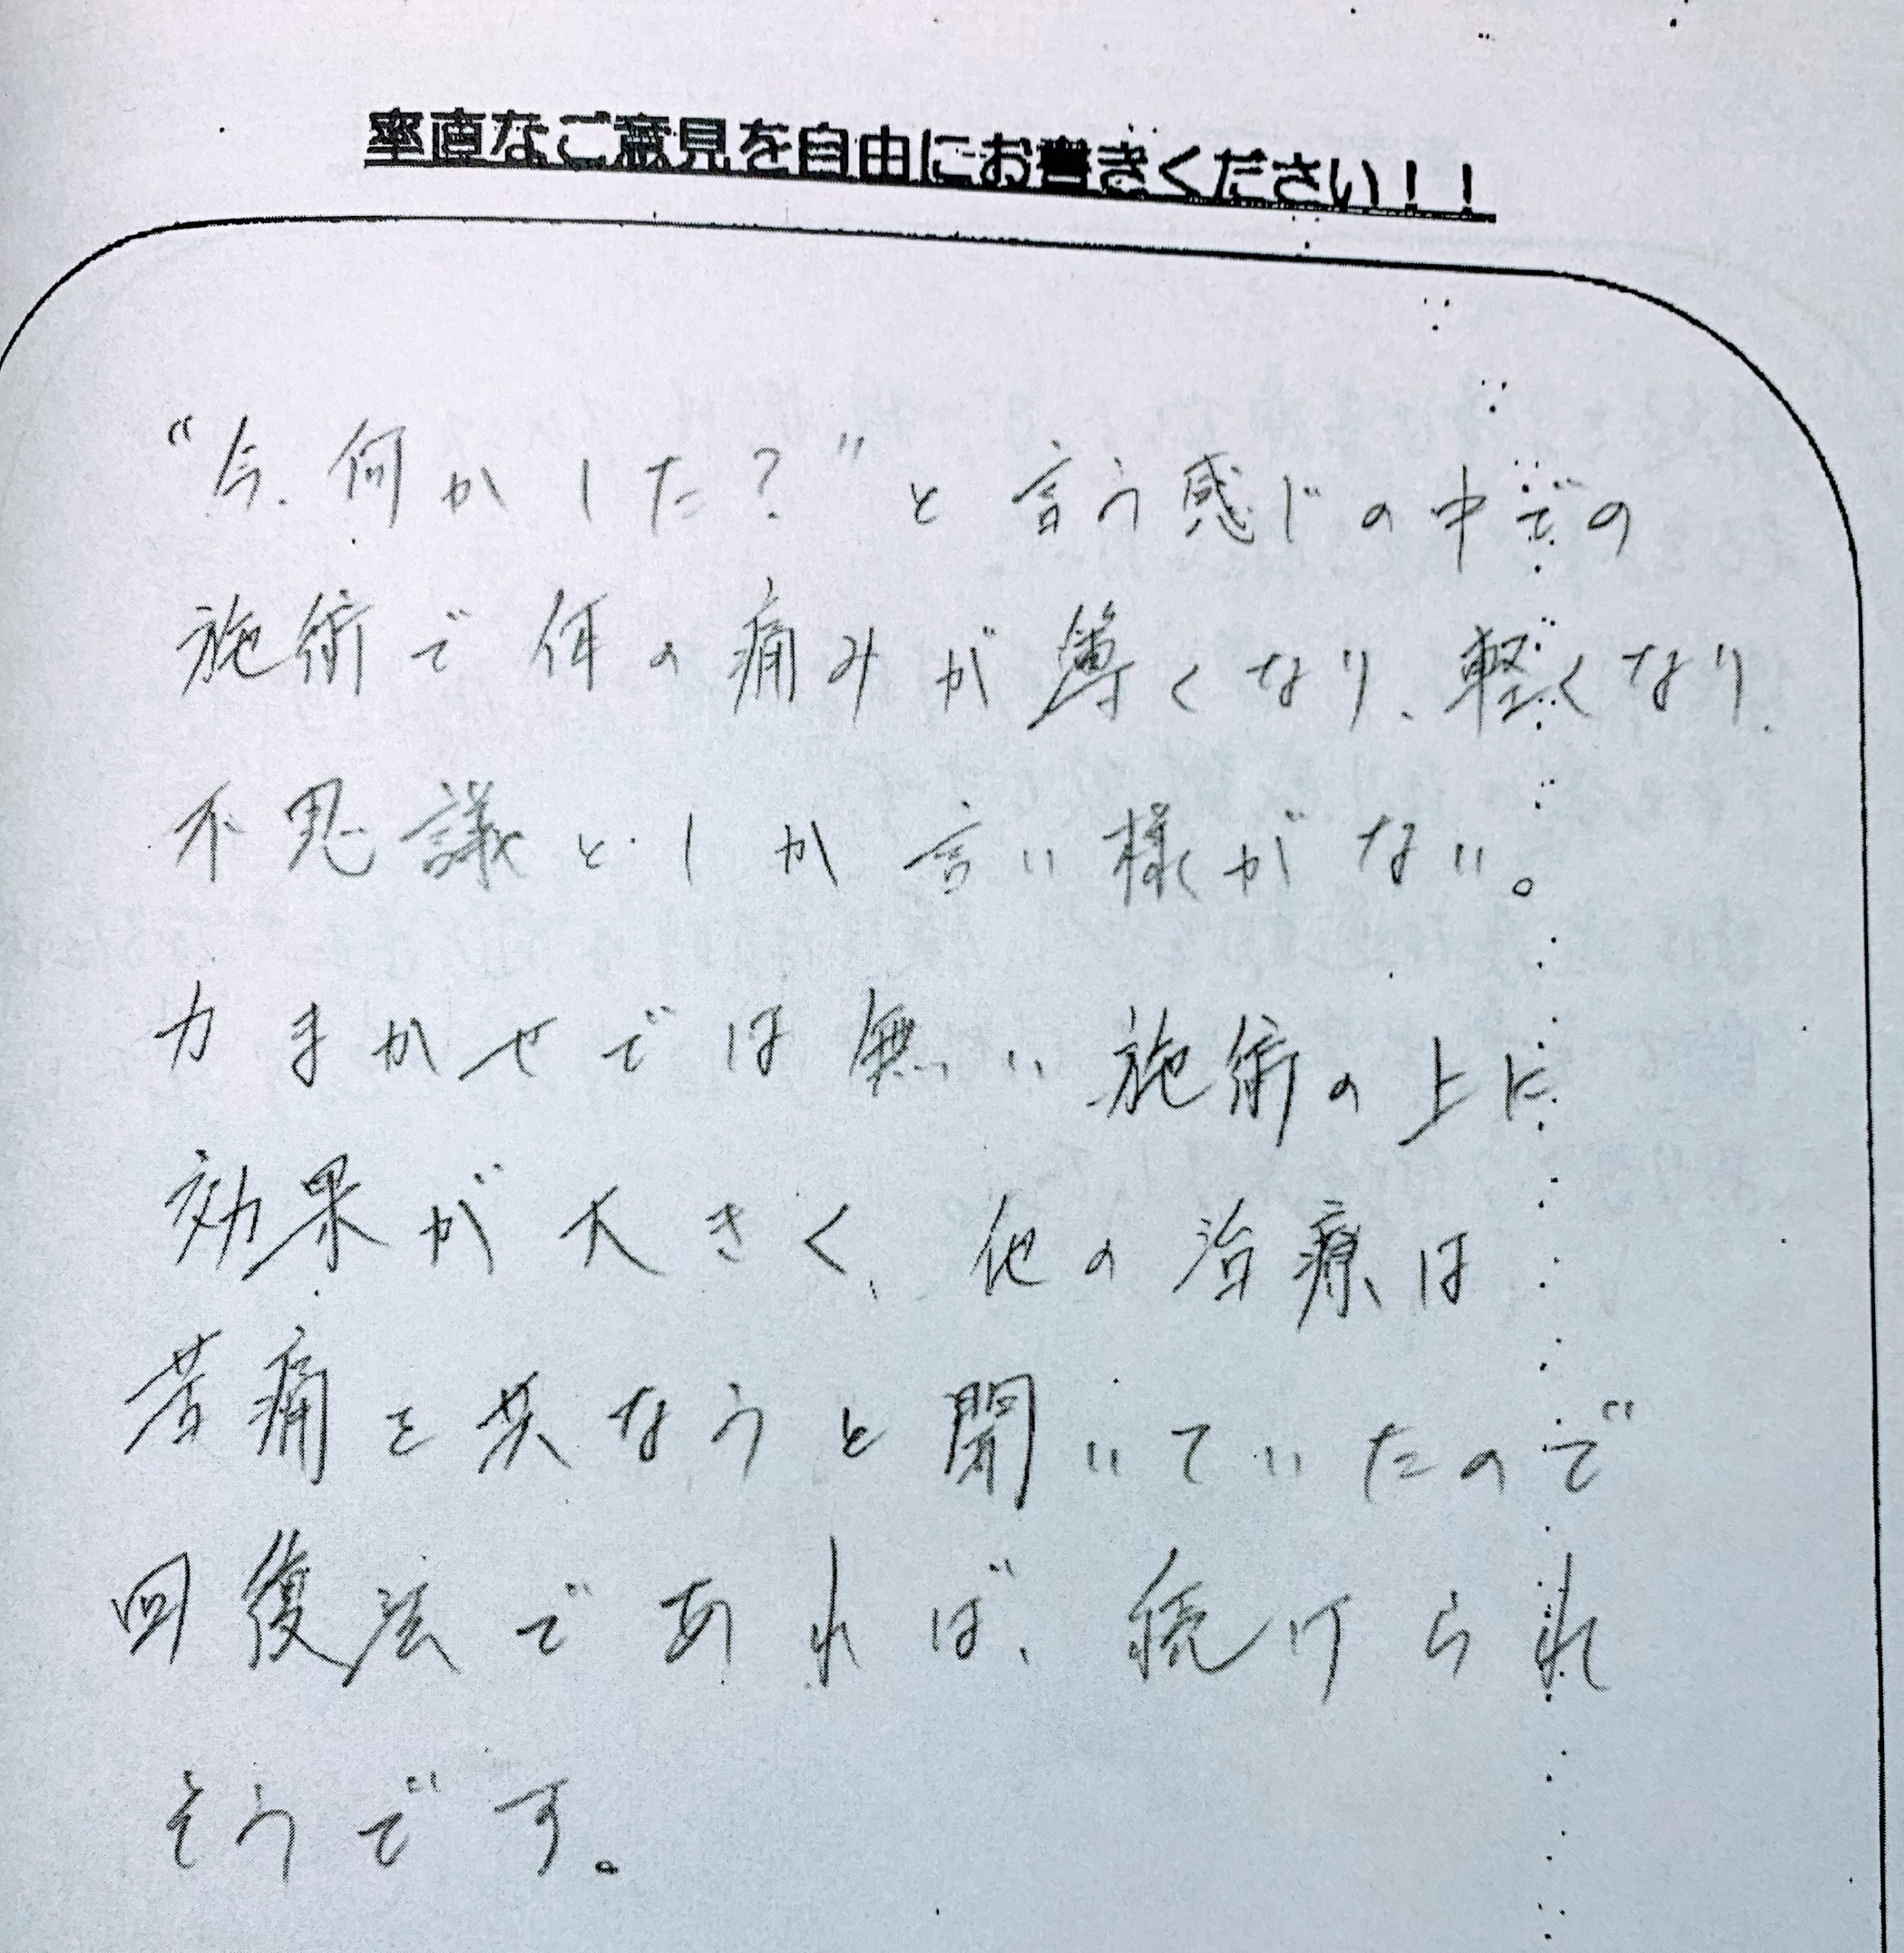 率直なご意見を自由にお書きください！！
“今、何かした？”と言う感じの中での
施術で何の痛みが薄くなり、軽くなり、
不思議としか言い様がない。
力まかせでは無い施術の上に
効果が大きく、他の治療は
苦痛を共なうと聞いていたので
回復法であれば、続けられ
そうです。